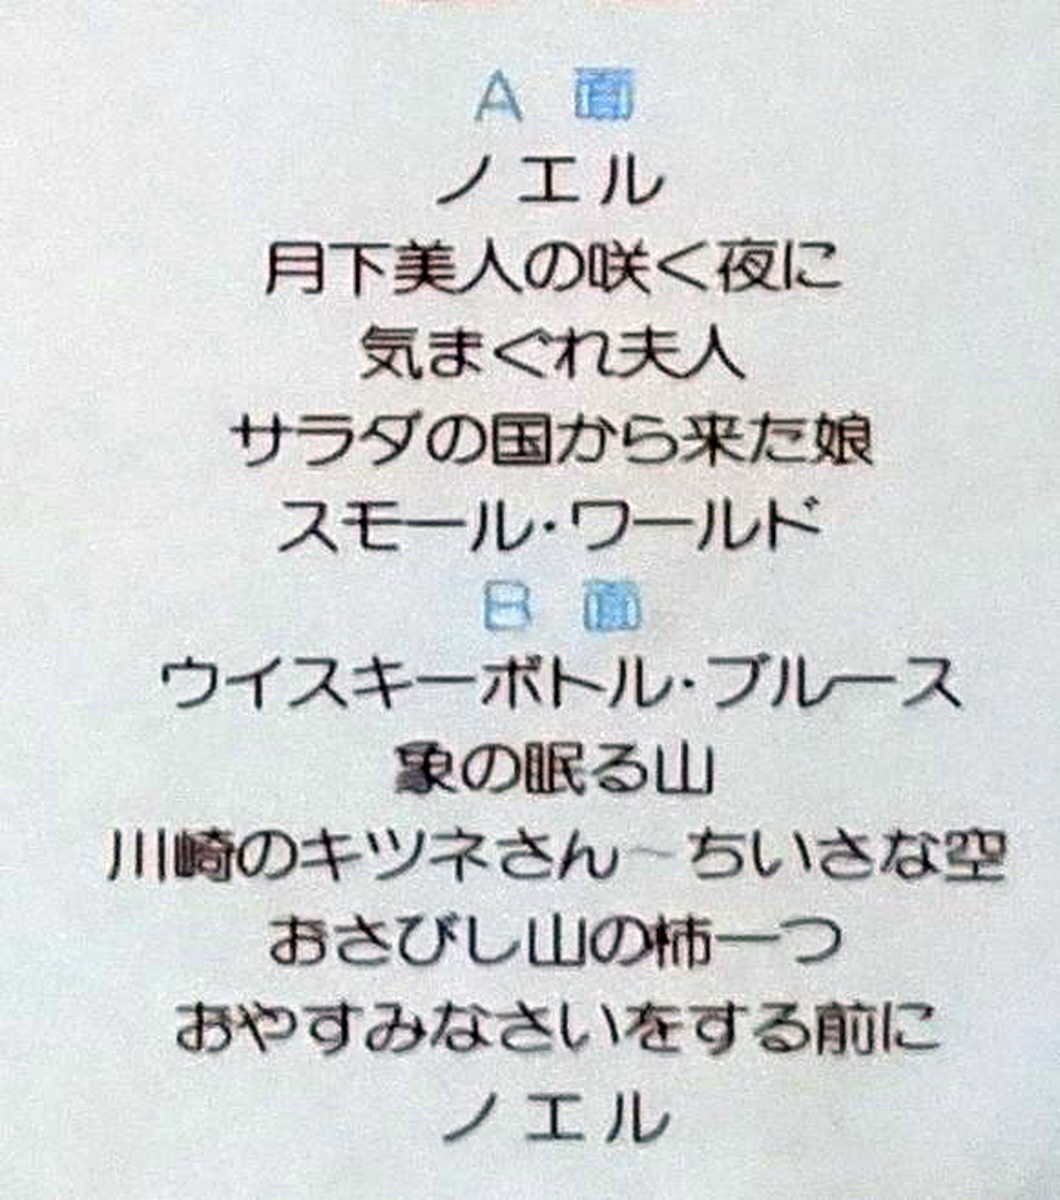 A 面
ノエル
月下美人の咲く夜に
気まぐれ夫人
サラダの国から来た娘
スモール・ワールド
B 面
ウイスキーボトル・ブルース
象の眠る山
川崎のキツネさん～ちいさな空
おさびし山の柿一つ
おやすみなさいをする前に
ノエル